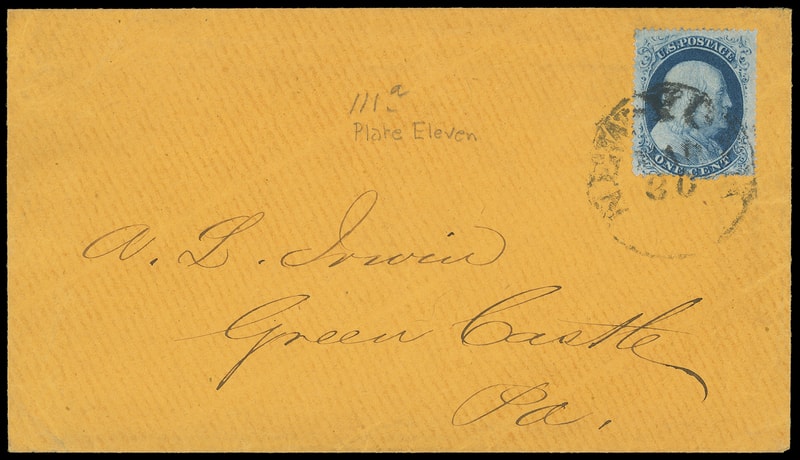 U.S. POSTAGE
ONE CENT
NEW-YO
30
111a
Plate Eleven
A. L. Irwin
Green Castle
Pa.